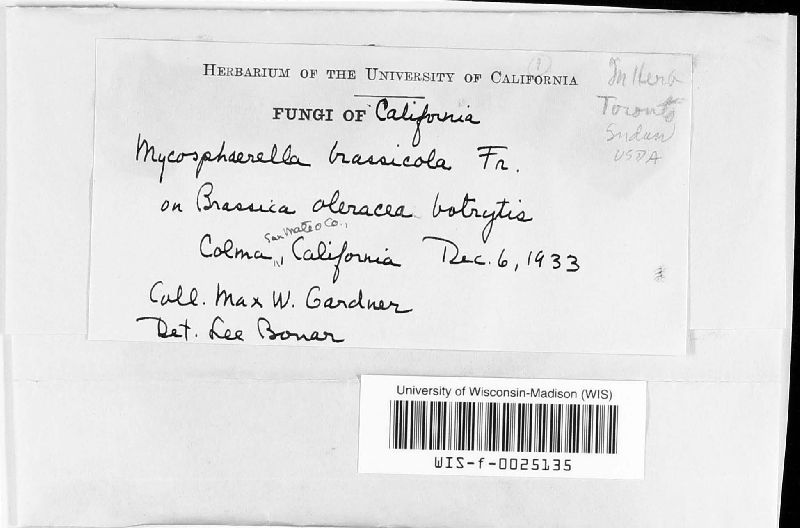 HERBARIUM OF THE UNIVERSITY OF CALIFORNIA
FUNGI OF California
Mycosphaerella brassicola Fr.
on Brassica oleracea botrytis
San Mateo Co.,
Colma, California Dec. 6, 1933
Coll. Max W. Gardner
Det. Lee Bonar
In Herb
Toronto
USDA
University of Wisconsin-Madison (WIS)
WIS-f-0025135